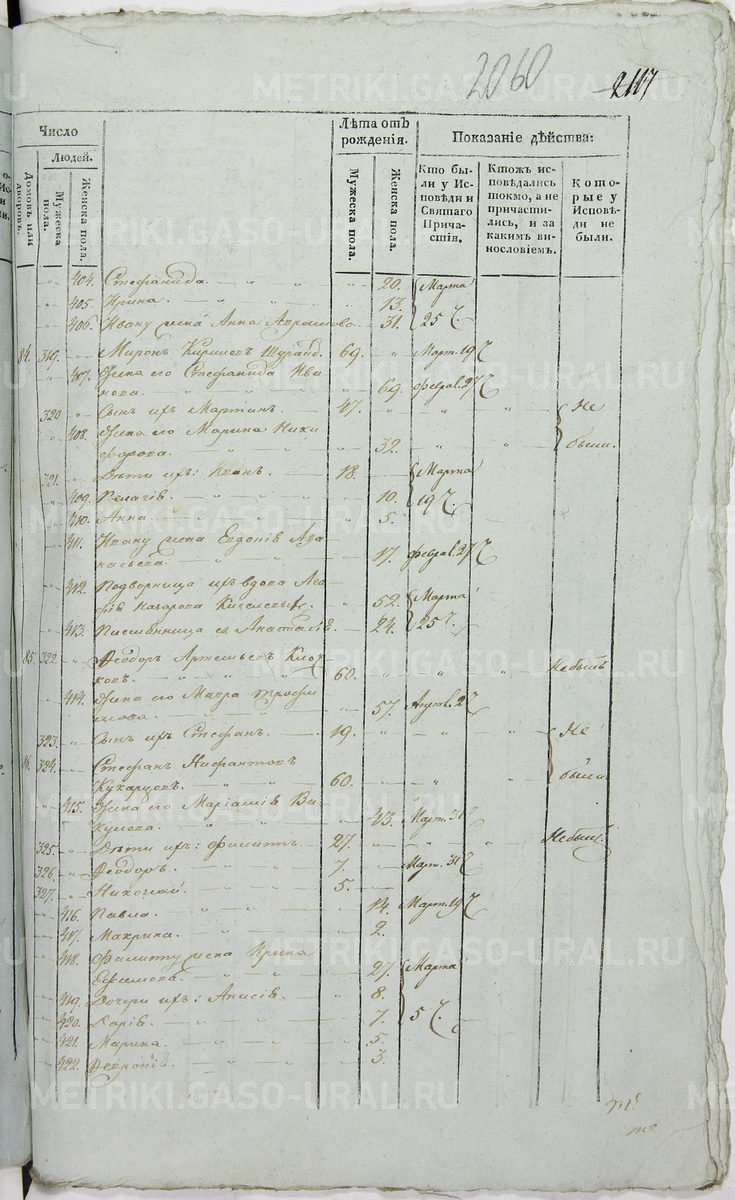 2060
2117
Число
Людей.
Домовъ или дворовъ.
Мужеска пола.
Женска пола.
Лѣта отъ рожденія.
Мужеска пола.
Женска пола.
Показаніе дѣйства:
Кто бы-
ли у Ис-
повѣди и
Святаго
Прича-
стія.
Ктожъ ис-
повѣдались
токмо, а не
причасти-
лись, и за
какимъ ви-
нословіемъ.
Кото-
рые у
Исповѣ-
ди не
были.
404. Стефанида. 20. Марта
405. Ирина. 13.
406. Ивану жена Анна 31. 25
84. 319. Миронъ 69. Март. 19
407. Жена его Стефанида Ива
нова. 69. Феврал. 27
320. Сынъ ихъ Мартинъ. 47. Не
408. Жена его Марина Ники
форова. 32. были.
321. Дѣти ихъ: Иванъ. 18. Марта
409. Пелагія. 10. 19
410. Анна. 5.
411. Ивану жена Евдокія
17. Феврал. 27
412. Подворница ихъ вдова
Назарова 52. Марта
413. Анастасія. 24. 25
85. 322. Ѳеодоръ Артемьевъ
60. Небылъ
414. Жена его Мавра Трофи
мова. 57. 2
323. Сынъ ихъ Стефанъ. 19. Не
86. 324. Стефанъ Нифантовъ
60. были.
415. Жена его
43. Март. 31
325. Дѣти ихъ: Филиппъ. 27. Небылъ.
326. Ѳеодоръ. 7. Март. 31
327. Николай. 5.
416. Павла. 14. Март. 19
417. Макрина. 2.
418. Филиппу жена Ирина
Ефимова. 27. Марта
419. Дочери ихъ: Анисія. 8.
420. Дарія. 7. 5
421. Марина. 5.
422. Февронія. 3.
METRIKI.GASO-URAL.RU